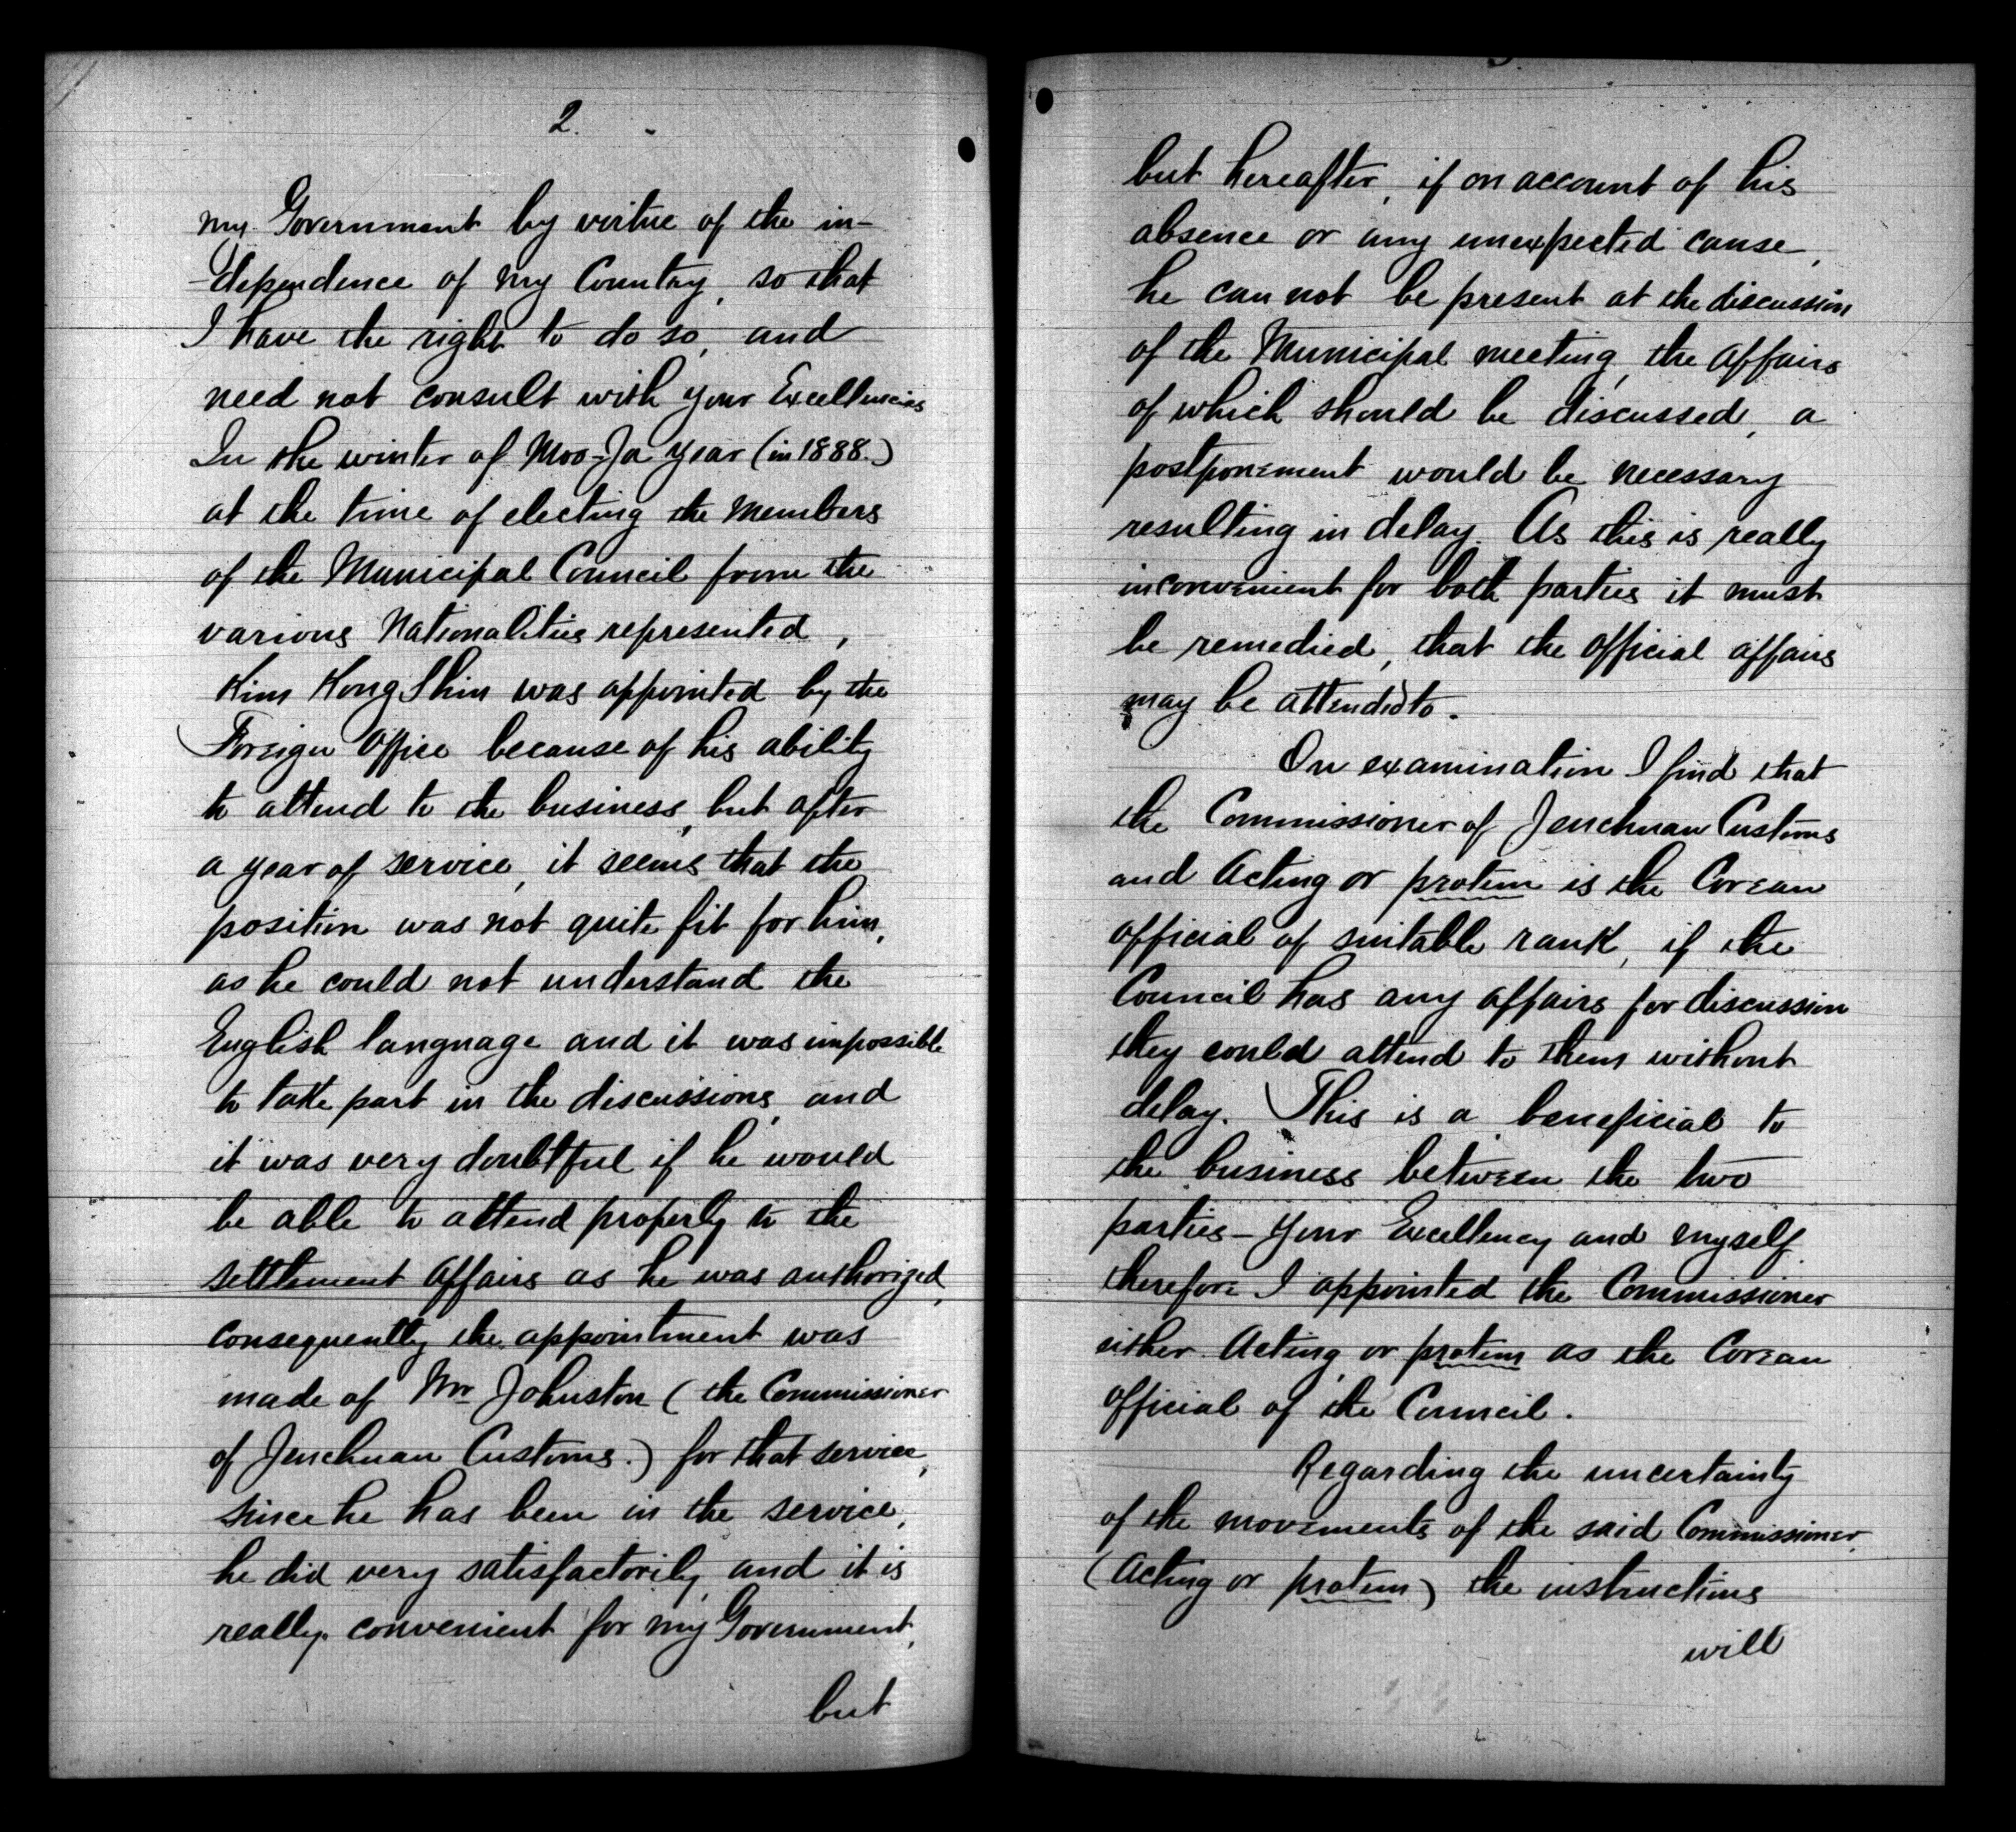 2.
my Government by virtue of the in-
-dependence of my Country, so that
I have the right to do so, and
need not consult with your Excellencies
In the winter of Moo-Ja year (in 1888.)
at the time of electing the Members
of the Municipal Council from the
various Nationalities represented,
Kim Kong Shim was appointed by the
Foreign Office because of his ability
to attend to the business, but after
a year of service, it seems that the
position was not quite fit for him,
as he could not understand the
English language and it was impossible
to take part in the discussions, and
it was very doubtful if he would
be able to attend properly to the
settlement affairs as he was authorized,
consequently the appointment was
made of Mr Johnston (the Commissioner
of Jenchuan Customs.) for that service,
since he has been in the service,
he did very satisfactorily, and it is
really convenient for my Government,
but
but hereafter, if on account of his
absence or any unexpected cause,
he can not be present at the discussion
of the Municipal meeting, the affairs
of which should be discussed, a
postponement would be necessary
resulting in delay. As this is really
inconvenient for both parties it must
be remedied, that the official affairs
may be attended to.
On examination I find that
the Commissioner of Jenchuan Customs
and Acting or protem is the Corean
official of suitable rank, if the
Council has any affairs for discussion
they could attend to them without
delay. This is a beneficial to
the business between the two
parties - Your Excellency and myself.
therefore I appointed the Commissioner
either Acting or protem as the Corean
official of the Council.
Regarding the uncertainty
of the movements of the said Commissioner,
(Acting or protem) the instructions
will